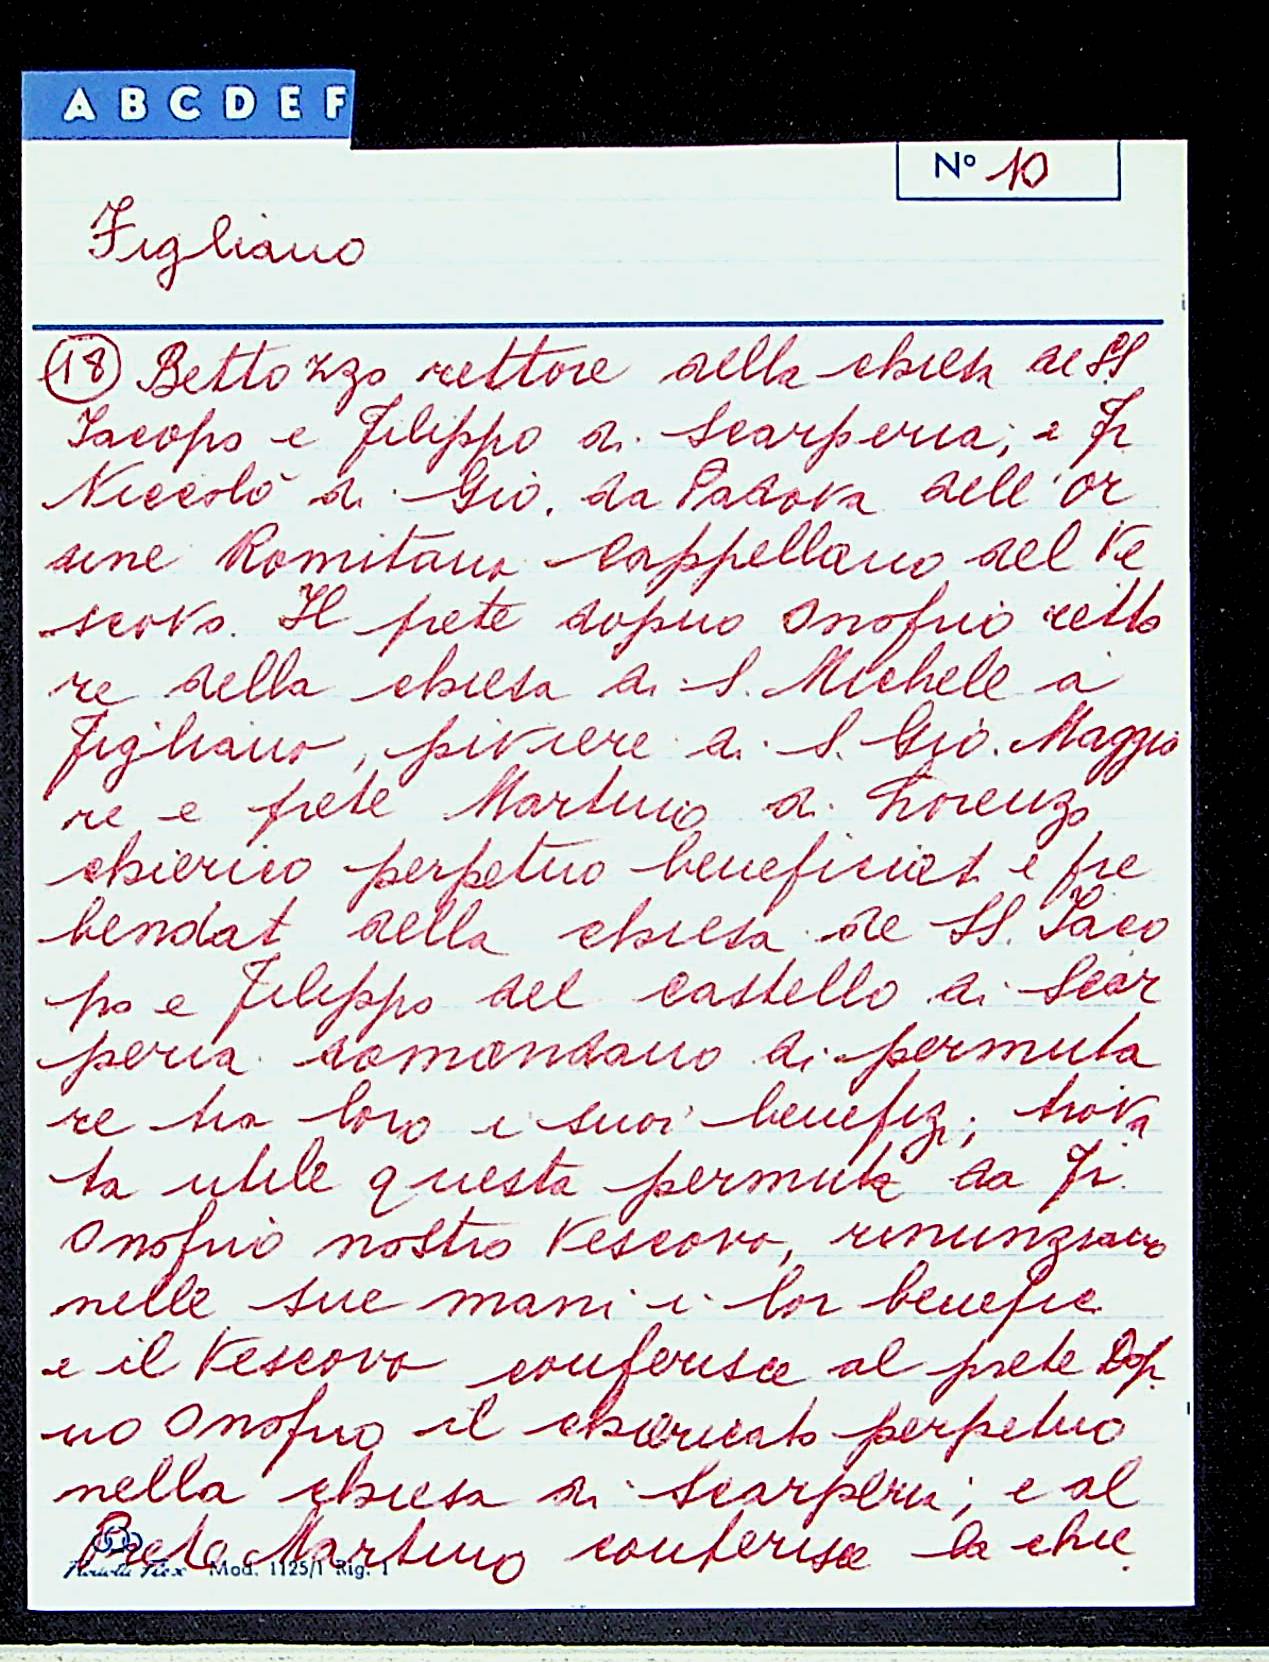 A B C D E F
Nº 10
Figliano
18 Bettozzo rettore della chiesa de SS
Iacopo e Filippo di Scarperia; e Fr
Niccolò di Gio. da Padova dell'or
dine Romitano Cappellano del Ve
scovo. Il prete dopno Onofrio retto
re della chiesa di S. Michele a
Figliano, piviere di S. Gio. Maggio
re e prete Martino di Lorenzo
chierico perpetuo beneficiat e pre
bendat della chiesa de SS. Iaco
po e Filippo del castello di Scar
peria domandano di permuta
re tra loro i suoi benefizi; trova
ta utile questa permuta da Fr.
Onofrio nostro Vescovo, renunziano
nelle sue mani i lor benefic
e il Vescovo conferisce al prete Dop
no Onofrio il chiericato perpetuo
nella chiesa di Scarperia; e al
Prete Martino conferisce la chie
Mod. 1125/1 Rig. 1